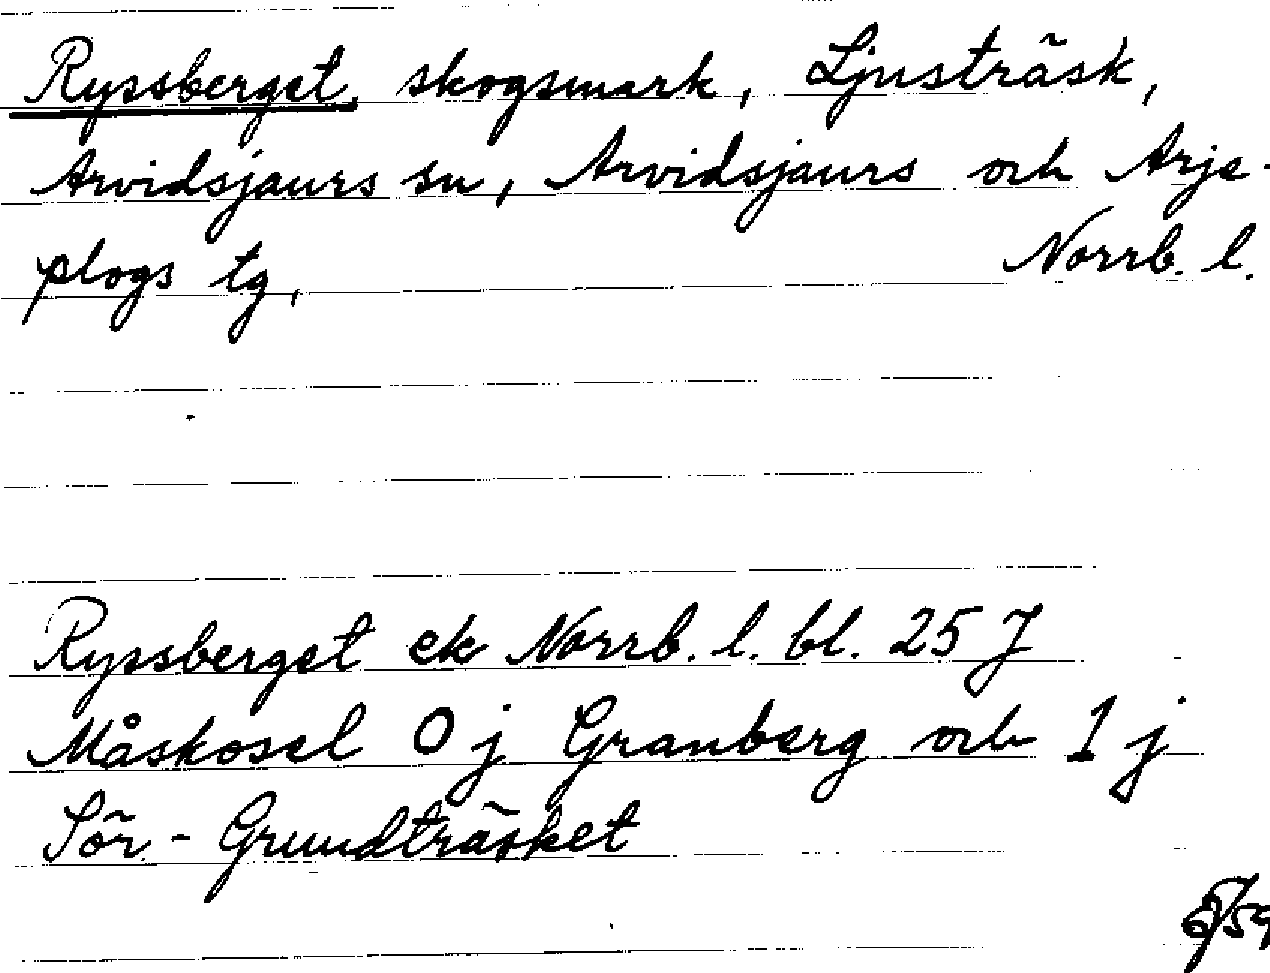 Ryssberget, skogsmark, Ljusträsk,
Arvidsjaurs sn, Arvidsjaurs och Arje-
plogs tg, Norrb. l.
Ryssberget ek Norrb. l. bl. 25 J
Måskosel 0 j Granberg och 1 j
Sör-Grundträsket